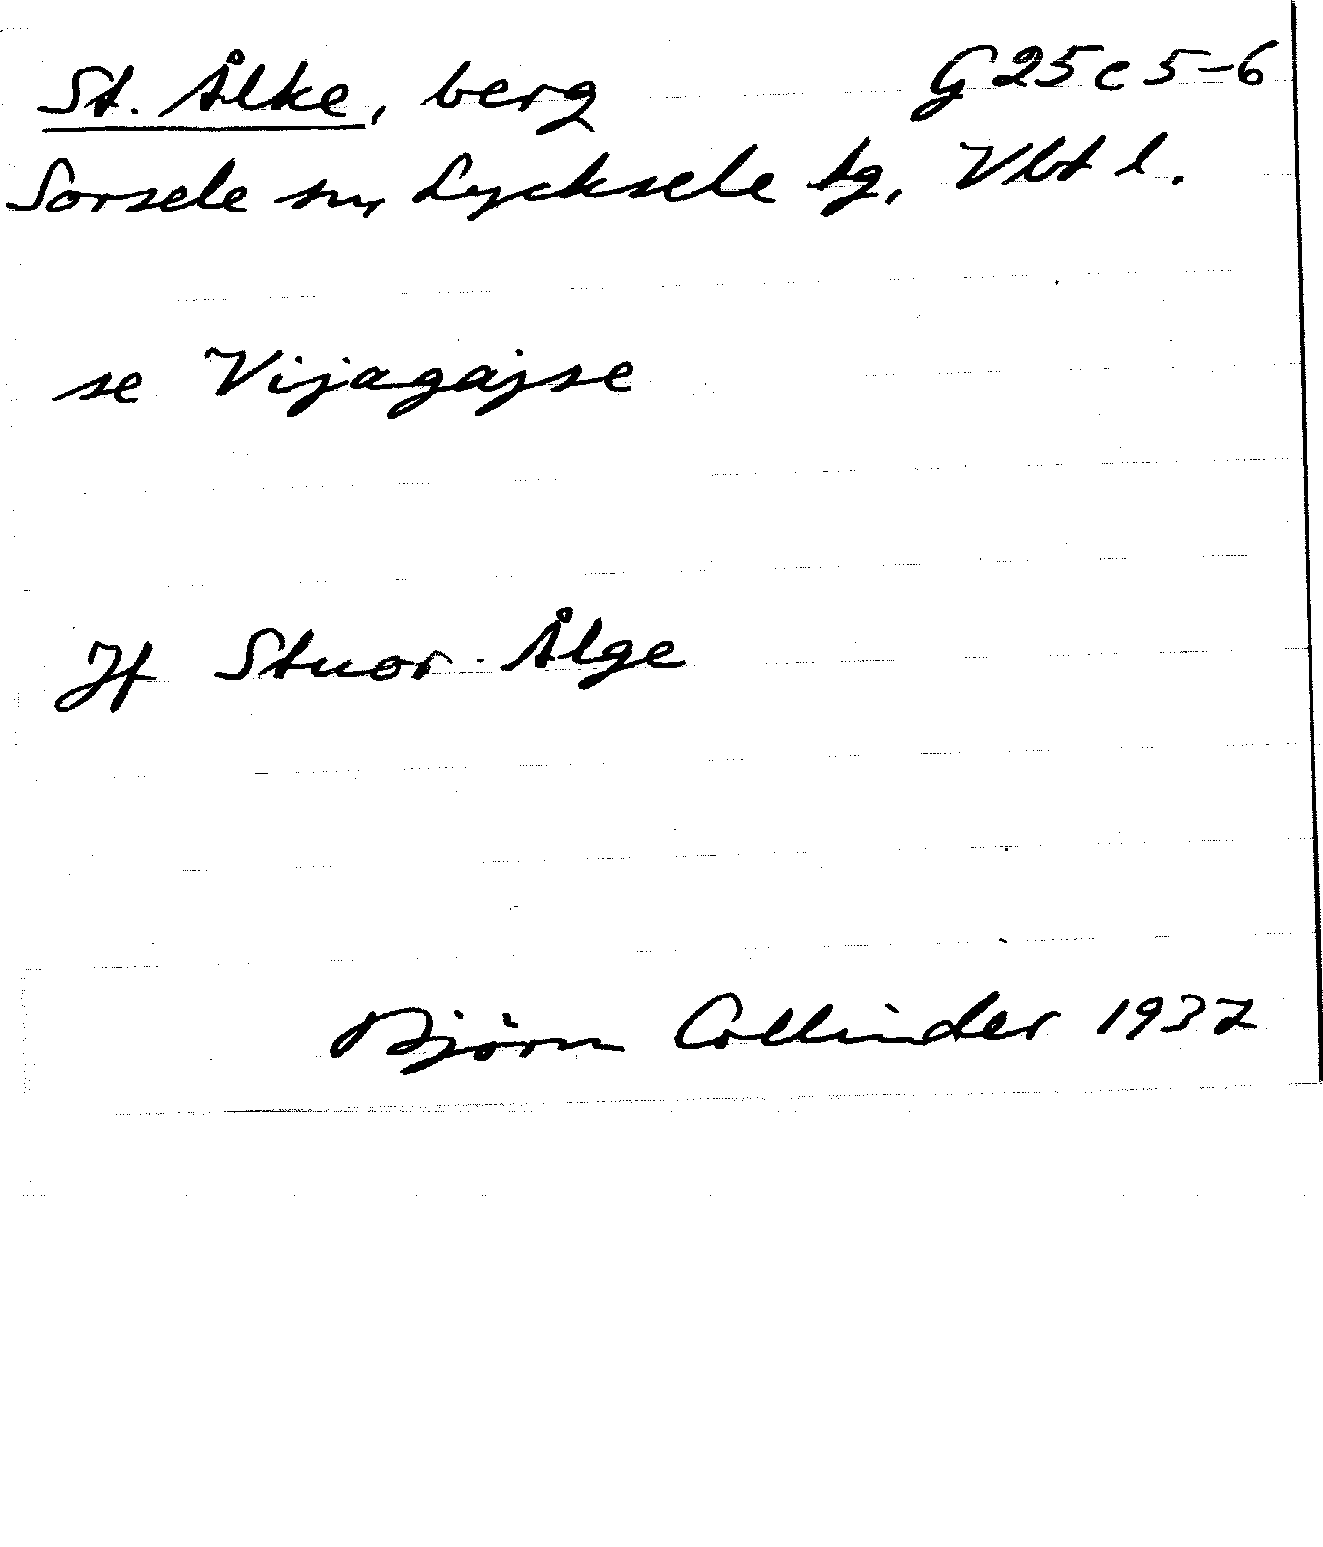 St. Ålke, berg G 25 c 5-6
Sorsele sn, Lycksele tg, Vbt l.
se Vijagajse
Jf Stuor-Ålge
Björn Collinder 1937